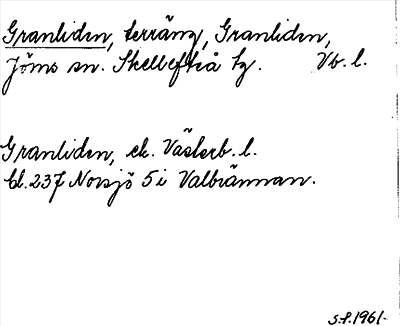 Granliden, terräng, Granliden,
Jörns sn. Skellefteå tg. Vb. l.
Granliden, ek. Västerb. l.
bl. 237 Norsjö 5 i Valbrännan.
S.P. 1961.